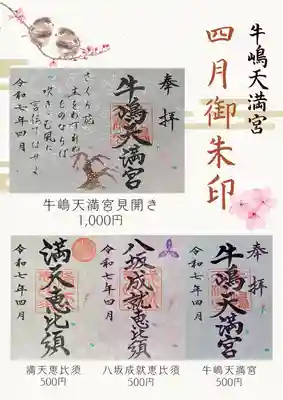 牛嶋天満宮
四月御朱印
奉拝
牛嶋天満宮
さくら花
主をわすれぬ
ものならば
吹き込む風に
言伝てはせよ
令和七年四月
牛嶋天満宮見開き
1,000円
奉拝
牛嶋天満宮
令和七年四月
八坂成就恵比須
令和七年四月
満天恵比須
令和七年四月
満天恵比須
500円
八坂成就恵比須
500円
牛嶋天満宮
500円